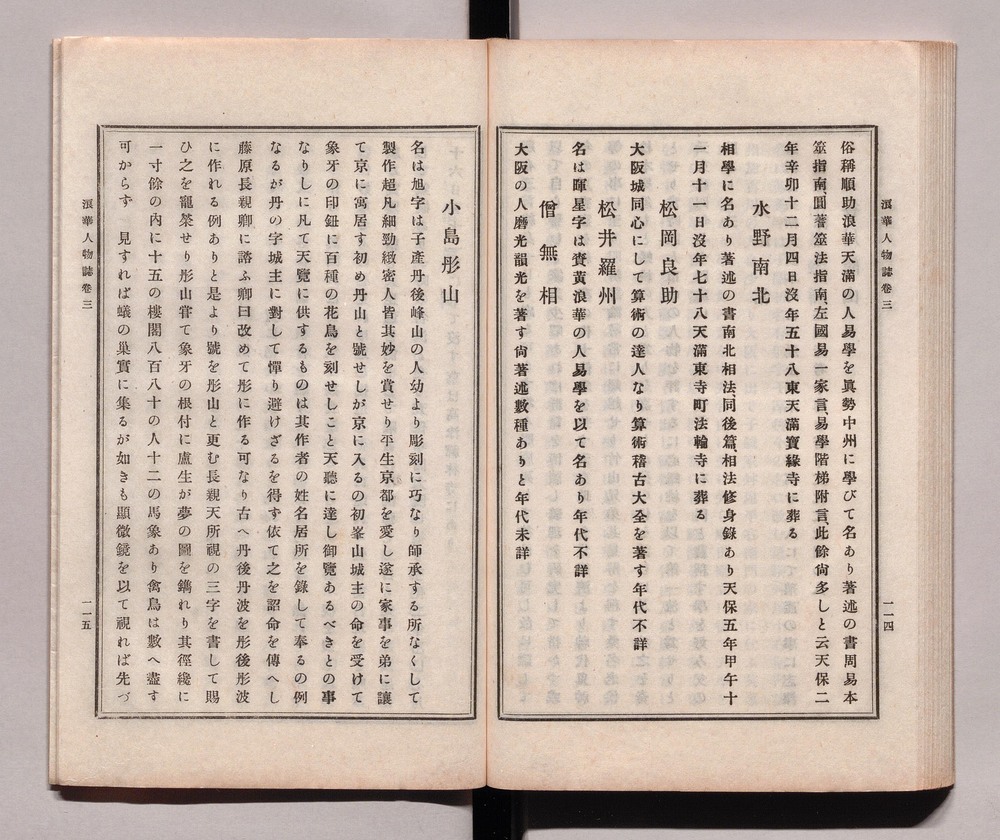 浪華人物誌卷三
一一四
俗稱順助浪華天滿の人易學を眞勢中州に學びて名あり著述の書周易本
筮指南圖著筮法指南、左國易一家言、易學階梯附言、此餘尙多しと云天保二
年辛卯十二月四日沒年五十八東天滿寶緣寺に葬る
水野南北
相學に名あり著述の書南北相法、同後篇、相法修身錄あり天保五年甲午十
一月十一日沒年七十八天滿東寺町法輪寺に葬る
松岡良助
大阪城同心にして算術の達人なり算術稽古大全を著す年代不詳
松井羅州
名は暉星字は賚黃浪華の人易學を以て名あり年代不詳
僧無相
大阪の人磨光韻光を著す尙著述數種ありと年代未詳
小島彤山
名は旭字は子產丹後峰山の人幼より彫刻に巧なり師承する所なくして
製作超凡細勁緻密人皆其妙を賞せり平生京都を愛し遂に家事を弟に讓
て京に寓居す初め丹山と號せしが京に入るの初峯山城主の命を受けて
象牙の印鈕に百種の花鳥を刻せしこと天聽に達し御覽あるべきとの事
なりしに凡て天覽に供するものは其作者の姓名居所を錄して奉るの例
なるが丹の字城主に對して憚り避けざるを得ず依て之を詔命を傳へし
藤原長親卿に諮ふ卿曰改めて彤に作る可なり古へ丹後丹波を彤後彤波
に作れる例ありと是より號を彤山と更む長親天所視の三字を書して賜
ひ之を寵榮せり彤山嘗て象牙の根付に盧生が夢の圖を鐫れり其徑纔に
一寸餘の內に十五の樓閣八百八十の人十二の馬象あり禽鳥は數へ盡す
可からず　見すれば蟻の巢實に集るが如きも顯微鏡を以て視れば先づ
浪華人物誌卷三
一一五